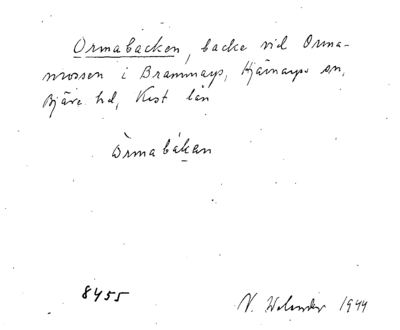 Ormabacken, backe vid Orma-
mossen i Brammarp, Hjärnarps sn,
Bjäre hd, Krist län
Ormabákan
8455
N. Welander 1944